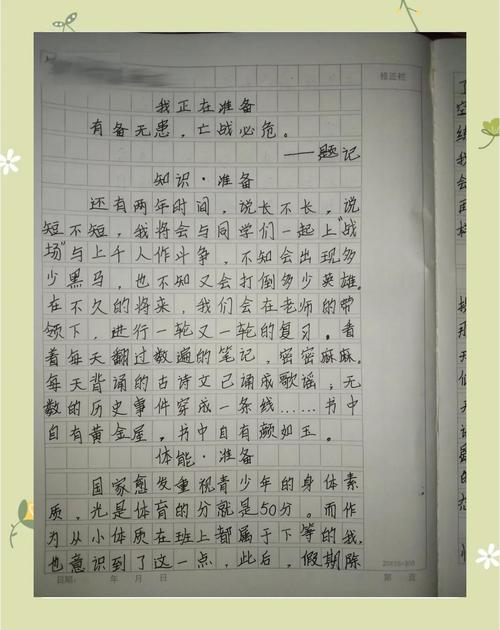 修正栏
我正在准备
有备无患，亡战必危。
——题记
知识·准备
还有两年时间，说长不长，说
短不短，我将会与同学们一起上“战
场”与上千人作斗争，不知会出现多
少黑马，也不知又会打倒多少英雄。
在不久的将来，我们会在老师的带
领下，进行一轮又一轮的复习。看
着每天翻过数遍的笔记，密密麻麻。
每天背诵的古诗文已诵成歌谣，无
数的历史事件穿成一条线……书中
自有黄金屋，书中自有颜如玉。
体能·准备
国家愈发重视青少年的身体素
质，光是体育的分就是50分。而作
为从小体质在班上都属于下等的我，
也意识到了这一点，此后，假期除
日期： 年 月 日
20X15=300
第 页
空
练
我
会
再